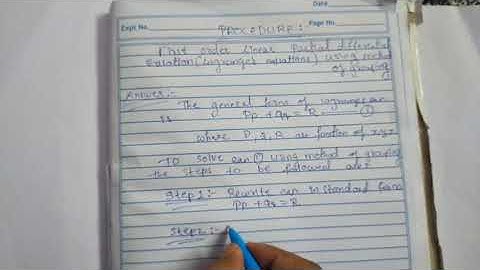 Date
Expt No.
Page No.
PROCEDURE:
First order linear Partial differential
Equation (Lagrange's equations) using method
of grouping
Answer:-
The general form of Lagrange eqn
is Pp + qq = R ①
where P, q, R are function of x,y,z
TO solve eqn ① using method of grouping
the steps to be followed are:
Step 1:- Rewrite eqn in standard form
Pp + qq = R
Step 2:-